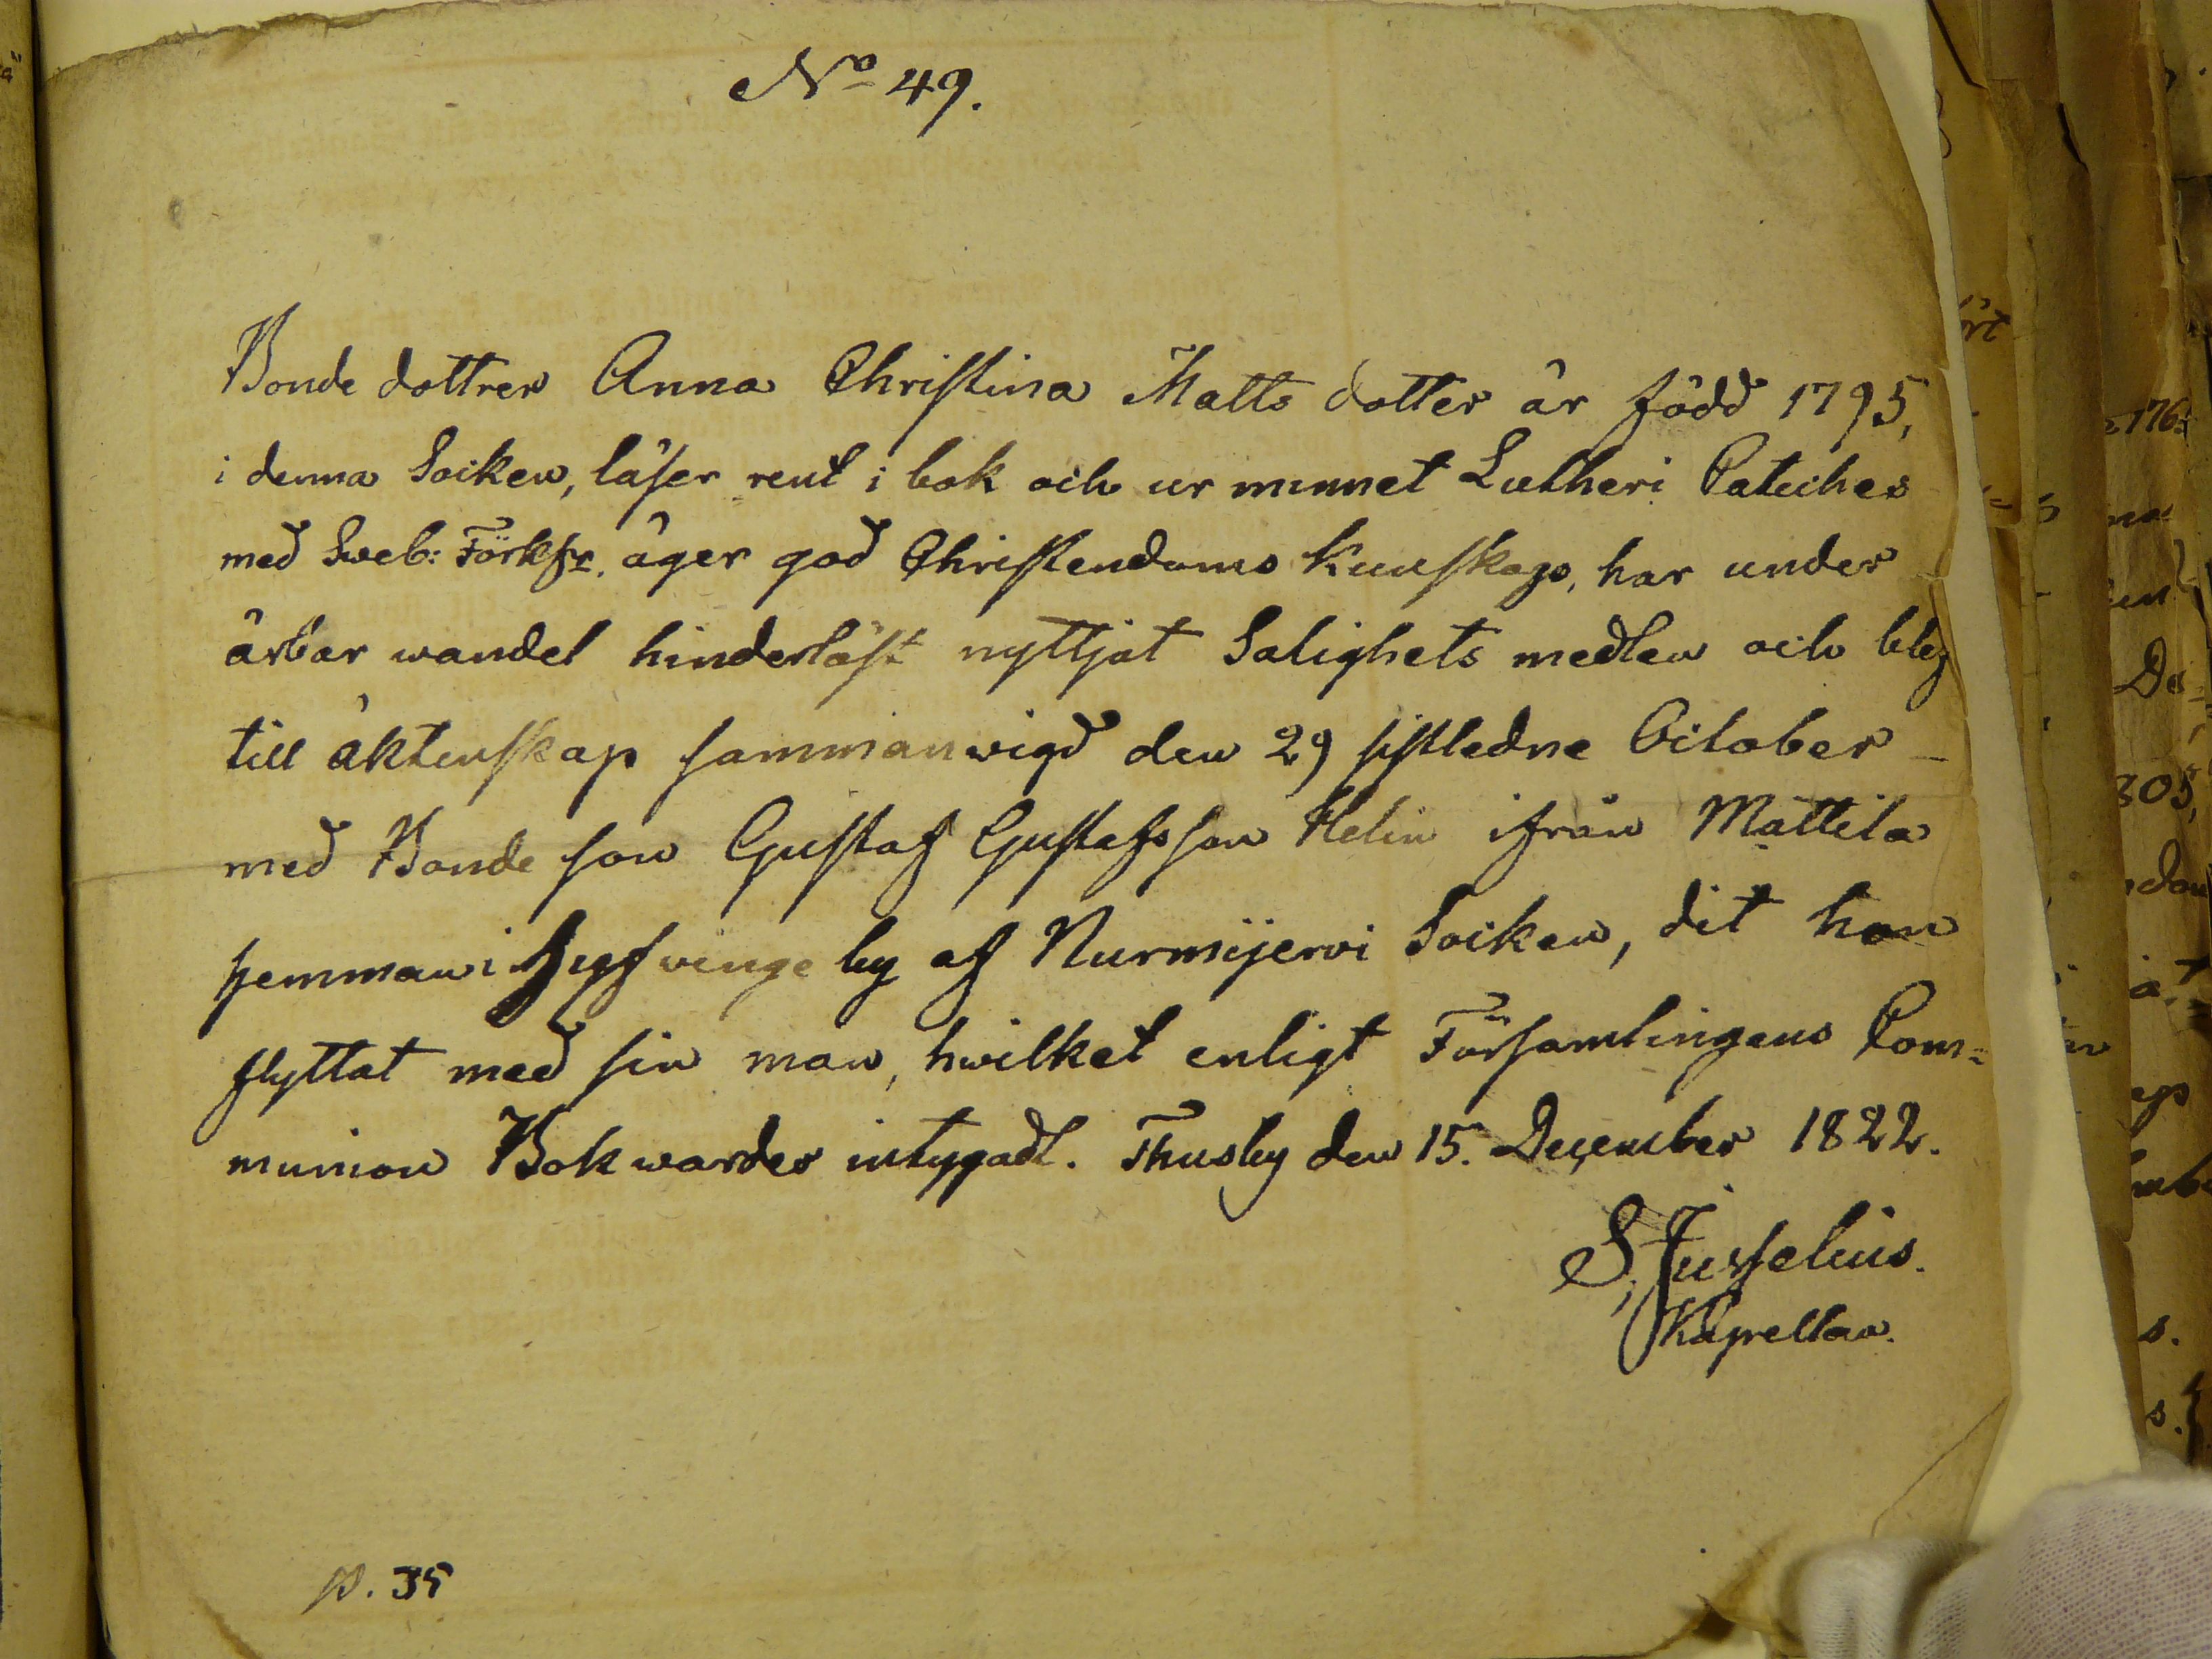 No 49.
Bonde dottren Anna Christina Matts dotter är född 1795,
i denna Socken, läser rent i bok och ur minnet Lutheri Cateches
med Sweb: Förkfr. äger god Christendoms Kunskap, har under
ärbar wandel hinderlöst nyttjat Salighets medlen och blef
till äktenskap sammanwigd den 29 sistledne October
med Bonde son Gustaf Gustafsson Helin ifrån Mattila
hemman i by af Nurmijervi Socken, dit hon
flyttat med sin man, hwilket enligt Församlingens Com=
munion Bok warder intygadt. Thusby den 15. December 1822.
S, Juselius.
Kapellan.
p. 35